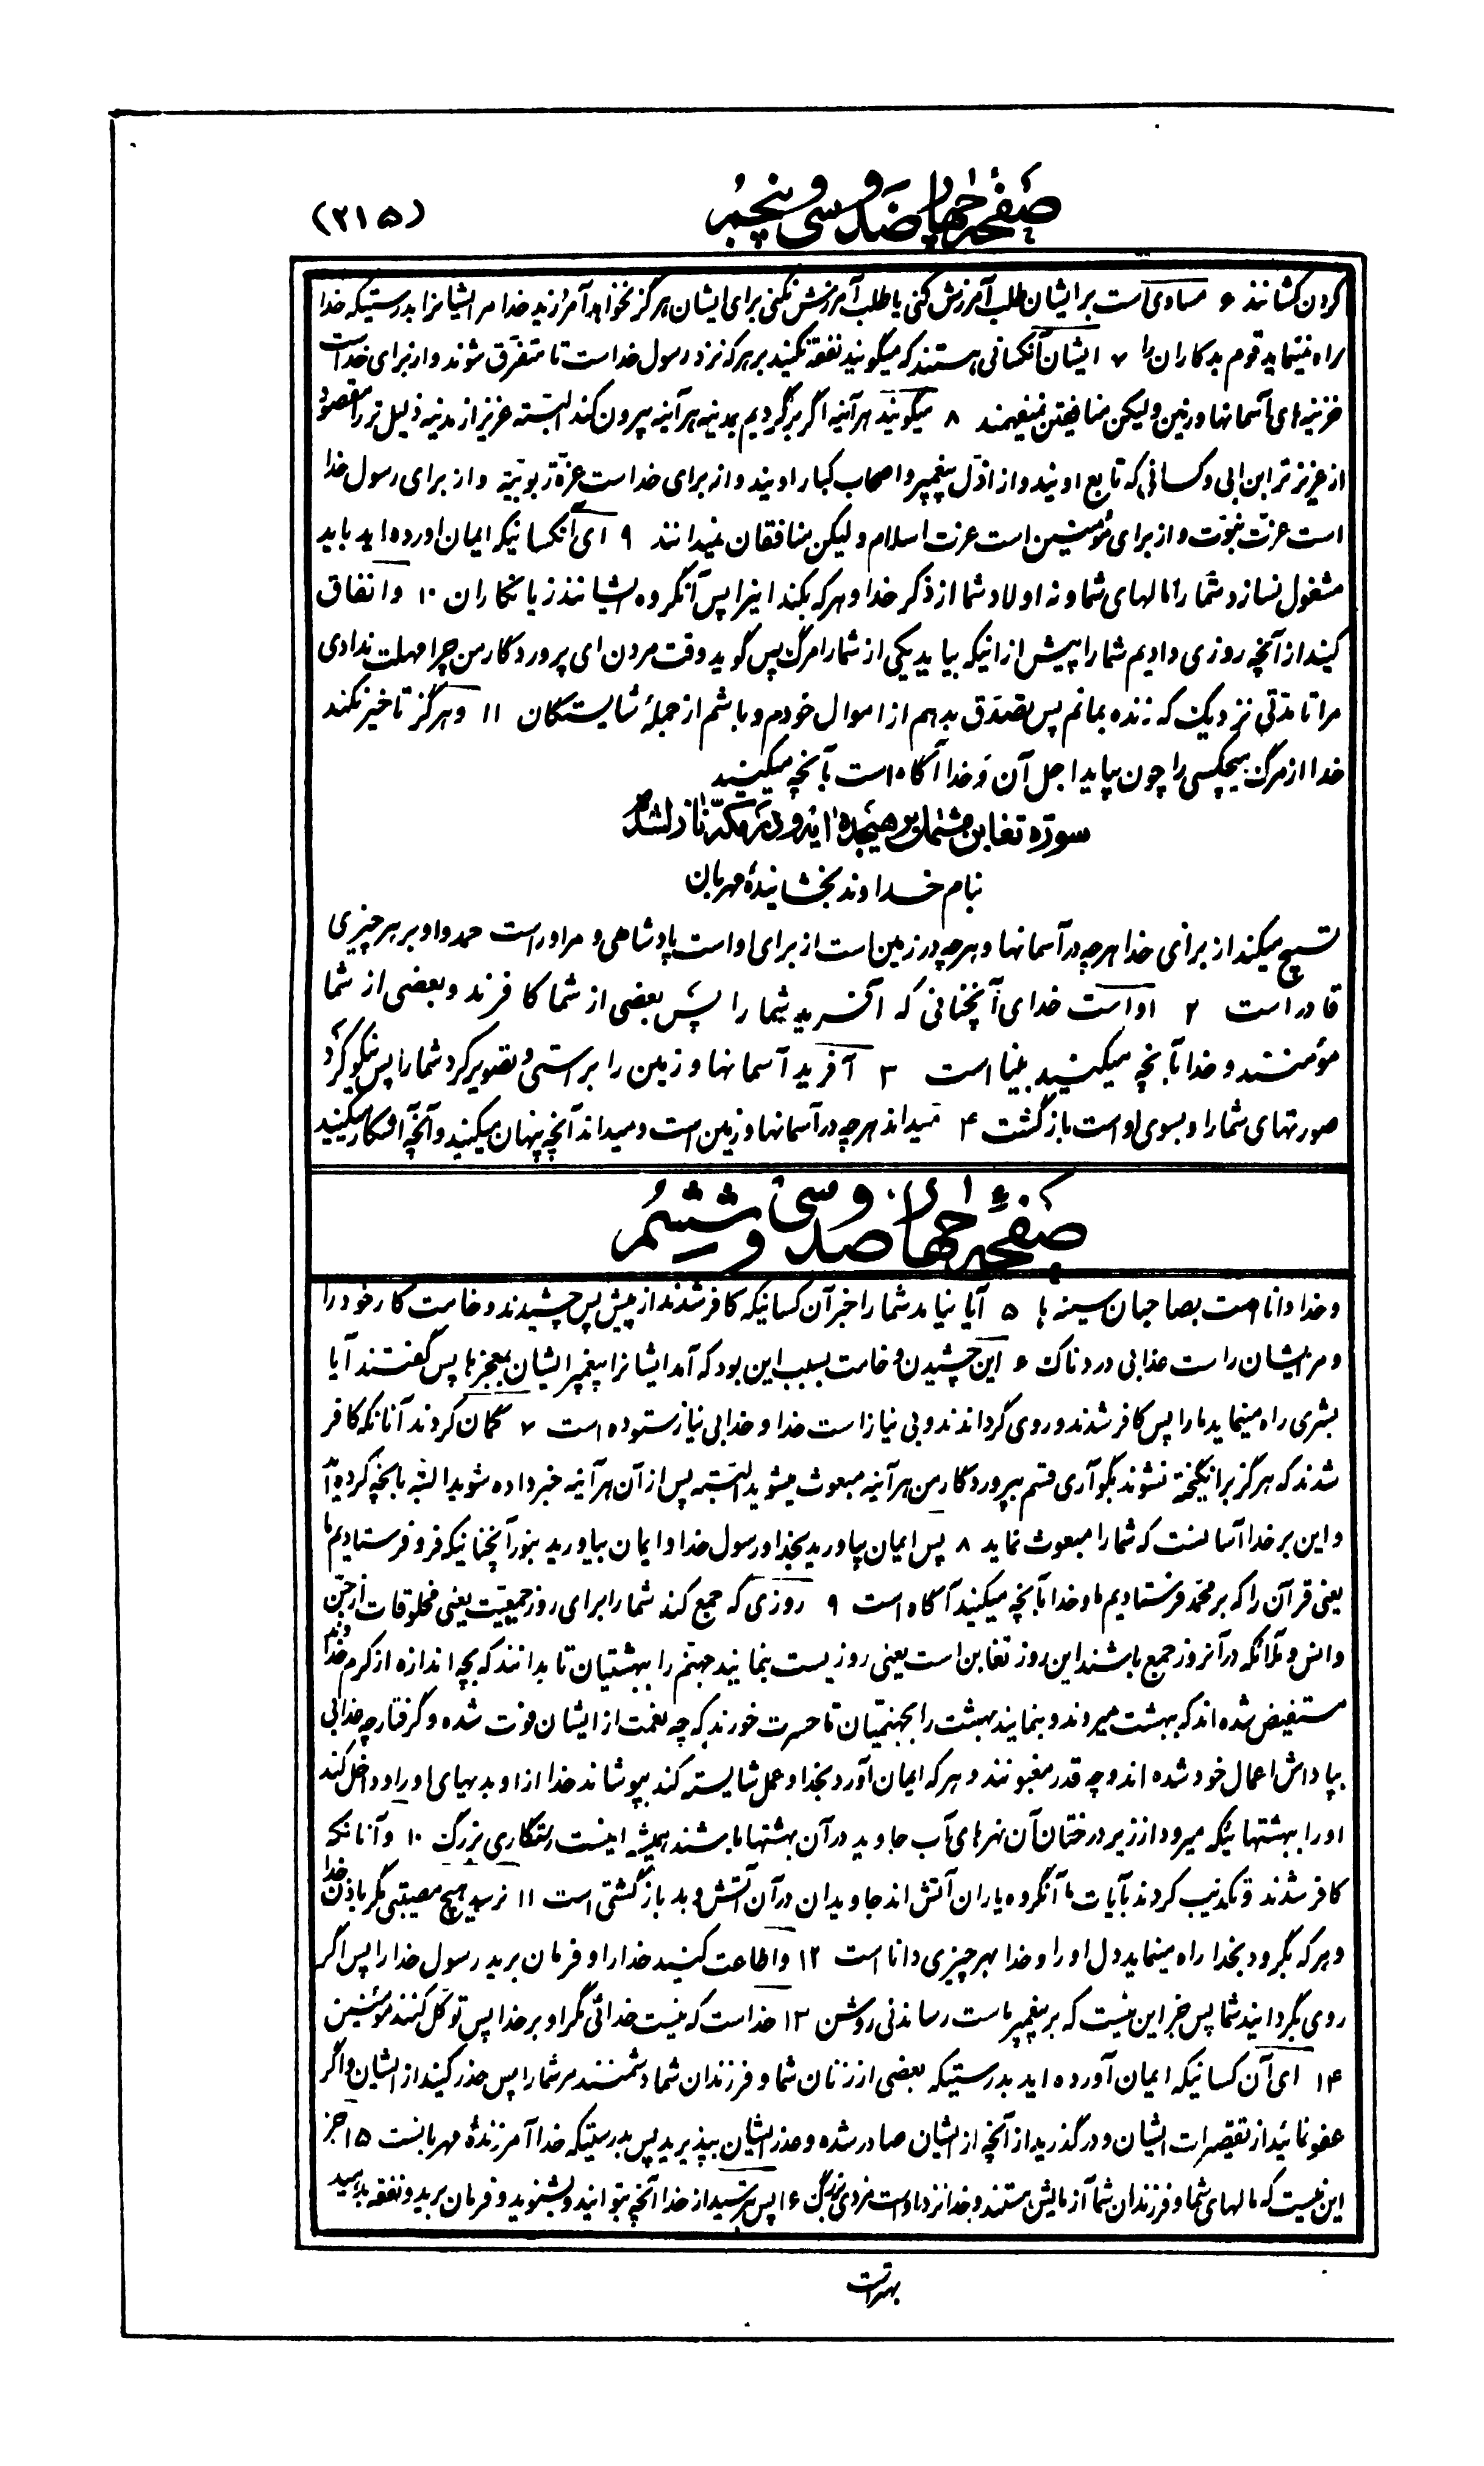 صفحهٔ چهار صد و سی و پنجم
(۲۱۵)
گردن کشانند ۶ مساوی است بر ایشان طلب آمرزش کنی یا طلب آمرزش نکنی برای ایشان هرگز نخواهد آمرزید خدا مر ایشانرا بدرستیکه خدا
راه ننماید قوم بدکاران را ۷ ایشان آنکسانی هستند که میگویند نفقه نکنید بر هر که نزد رسول خدا است تا متفرق شوند و از برای خداست
خزینه‌های آسمانها و زمین و لیکن منافقین نمیفهمند ۸ میگویند هر آینه اگر برگردیم بمدینه هر آینه بیرون کند البته عزیز از مدینه ذلیل تر را مقصود
از عزیزتر ابن ابی و کسانی که تابع اویند و از اذل پیغمبر و اصحاب کبار اویند و از برای خداست عزّة ربوبیّة و از برای رسول خدا
است عزّت نبوّت و از برای مؤمنین است عزت اسلام و لیکن منافقان نمیدانند ۹ ای آنکسانیکه ایمان اورده اید باید
مشغول نسازد شما را مالهای شما و نه اولاد شما از ذکر خدا و هر که بکند اینرا پس آنگروه ایشانند زیانکاران ۱۰ و انفاق
کنید از آنچه روزی دادیم شما را پیش از انیکه بیاید یکی از شما را مرگ پس گوید وقت مردن ای پروردگار من چرا مهلت ندادی
مرا تا مدّتی نزدیک که زنده بمانم پس تصدّق بدهم از اموال خودم و باشم از جملهٔ شایستگان ۱۱ و هرگز تاخیر نکند
خدا از مرگ هیچکسی را چون بیاید اجل آن و خدا آگاه است بآنچه میکنید
سورهٔ تغابن مشتمل بر هیجده ایه و در مکه نازل شده
بنام خداوند بخشایندهٔ مهربان
تسبیح میکند از برای خدا هرچه در آسمانها و هرچه در زمین است از برای او است پادشاهی و مر او راست حمد و او بر هر چیزی
قادر است ۲ او است خدای آنچنانی که آفرید شما را پس بعضی از شما کافرند و بعضی از شما
مؤمنند و خدا بآنچه میکنید بینا است ۳ آفرید آسمانها و زمین را براستی و تصویر کرد شما را پس نیکو کرد
صورتهای شما را و بسوی او است بازگشت ۴ میداند هرچه در آسمانها و زمین است و میداند آنچه پنهان میکنید و آنچه آشکار میکنید
صفحهٔ چهار صد و سی و ششم
و خدا دانا است بصاحبان سینه ها ۵ آیا نیامد شما را خبر آن کسانیکه کافر شدند از پیش پس چشیدند و خامت کار خود را
و مر ایشان راست عذابی دردناک ۶ این چشیدن و خامت بسبب این بود که آمد ایشانرا پیغمبر ایشان بمعجزها پس گفتند آیا
بشری راه مینماید ما را پس کافر شدند و روی گرداندند و بی نیاز است خدا و خدا بی نیاز ستوده است ۷ گمان کردند آنانکه کافر
شدند که هرگز برانگیخته نشوند بگو آری قسم بپروردگار من هر آینه مبعوث میشوید البته پس از آن هر آینه خبر داده شوید البته بآنچه کرده‌اید
و این بر خدا آسانست که شما را مبعوث نماید ۸ پس ایمان بیاورید بخدا و رسول خدا و ایمان بیاورید بنور آنچنانیکه فرو فرستادیم ما
یعنی قرآن را که بر محمّد فرستادیم ما و خدا بآنچه میکنید آگاه است ۹ روزی که جمع کند شما را برای روز جمعیّت یعنی مخلوقات از جن
و انس و ملائکه در آنروز جمع باشند این روز تغابن است یعنی روزیست بنمایند جهنم را ببهشتیان تا بدانند که بچه اندازه از کرم خداوند
مستفیض شده‌اند که ببهشت میروند و بنمایند بهشت را بجهنمیان تا حسرت خورند که چه نعمت از ایشان فوت شده و گرفتار چه عذابی
بپاداش اعمال خود شده اند و چه قدر مغبونند و هر که ایمان آورد بخدا و عمل شایسته کند بپوشاند خدا از او بدیهای او را و داخل کند
او را ببهشتهائیکه میرود از زیر درختان آن نهرهای آب جاوید در آن بهشتها باشند همیشه اینست رستگاری بزرگ ۱۰ و آنانکه
کافر شدند و تکذیب کردند بآیات ما آنگروه یاران آتش اند جاویدان در آن آتش و بد بازگشتی است ۱۱ نرسید هیچ مصیبتی مگر باذن خدا
و هر که بگرود بخدا راه مینماید دل او را و خدا بهر چیزی دانا است ۱۲ و اطاعت کنید خدا را و فرمان برید رسول خدا را پس اگر
روی بگردانید شما پس جز این نیست که بر پیغمبر ماست رساندنی روشن ۱۳ خداست که نیست خدائی مگر او بر خدا پس توکّل کنند مؤمنین
۱۴ ای آن کسانیکه ایمان آورده اید بدرستیکه بعضی از زنان شما و فرزندان شما دشمنند مر شما را پس حذر کنید از ایشان و اگر
عفو نمائید از تقصیرات ایشان و درگذرید از آنچه از ایشان صادر شده و عذر ایشان بپذیرید پس بدرستیکه خدا آمرزندهٔ مهربانست ۱۵ جز
این نیست که مالهای شما و فرزندان شما آزمایش هستند و خدا نزد او است مزدی بزرگ ۱۶ پس بترسید از خدا آنچه بتوانید و بشنوید و فرمان برید و نفقه بدهید
بهتر است